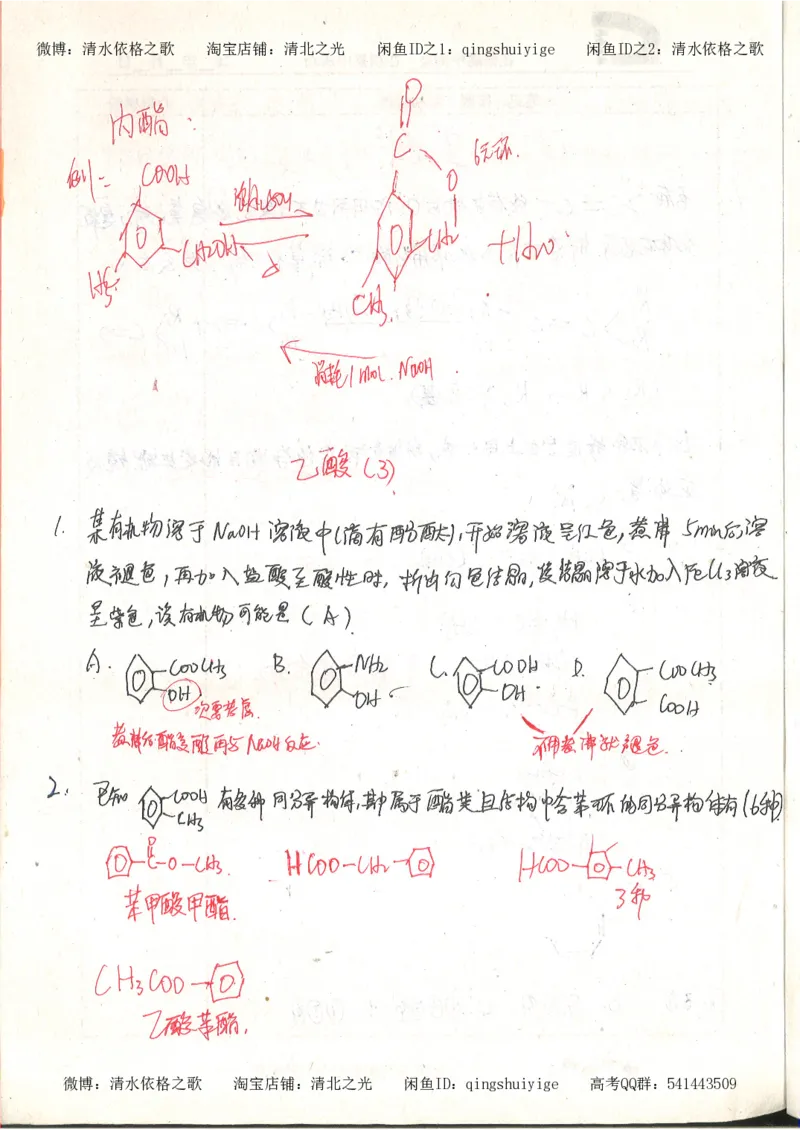 微博：清水依格之歌 淘宝店铺：清北之光 闲鱼ID之1：qingshuiyige 闲鱼ID之2：清水依格之歌
内酯.
例= COOH CH2OH 浓H2SO4 △ H3C
O C O CH2 CH3 6元环. +H2O
消耗1mol NaOH.
乙酸(3)
1. 某有机物溶于NaOH溶液中(滴有酚酞),开始溶液呈红色,煮沸5min后溶
液褪色,再加入盐酸至酸性时,析出白色结晶,该结晶溶于水加入FeCl3溶液
呈紫色,该有机物可能是(A)
A. COOCH3 OH B. NH2 OH C. COOH OH D. COOCH3 COOH
煮沸后酯变酸再与NaOH反应. 不用煮沸就褪色.
2. 已知 COOH CH3 有多种同分异构体,其中属于酯类且结构中含苯环的同分异构体有(6种)
O C-O-CH3 HCOO-CH2- HCOO- CH3
苯甲酸甲酯. 3种
CH3COO-
乙酸苯酯.
微博：清水依格之歌 淘宝店铺：清北之光 闲鱼ID：qingshuiyige 高考QQ群：541443509